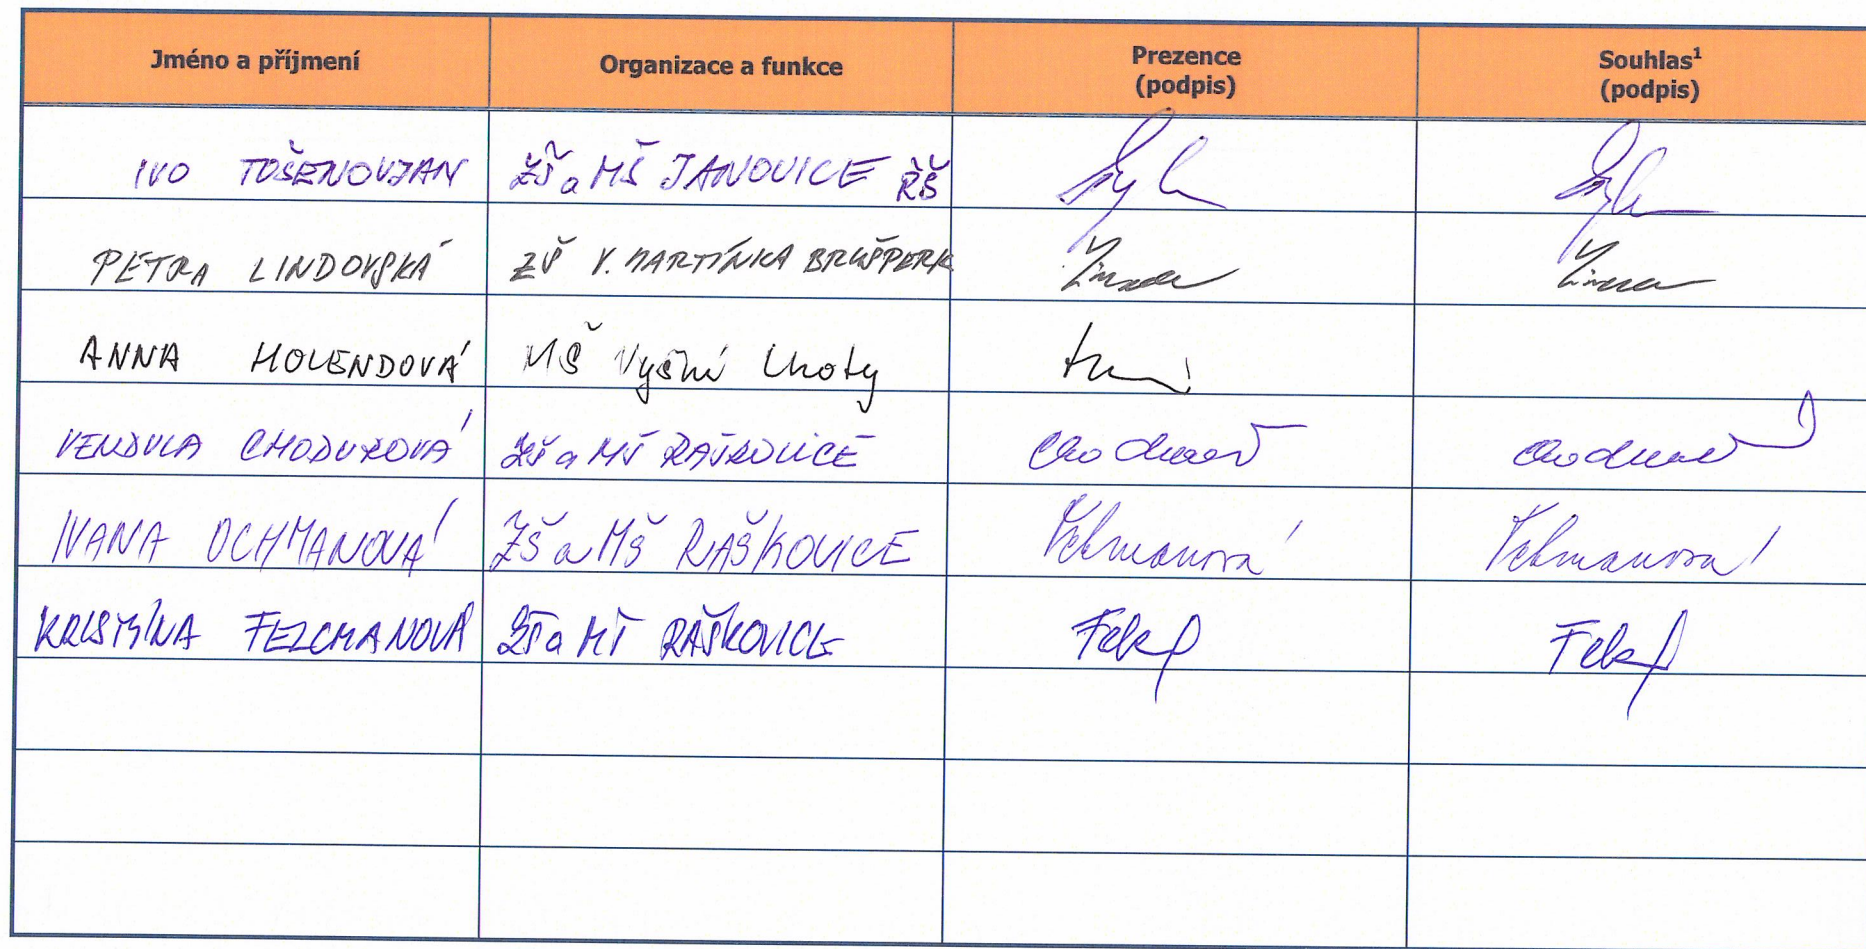 Jméno a příjmení Organizace a funkce Prezence (podpis) Souhlas¹ (podpis)
IVO TOŠENOVJAN ZŠ a MŠ JANOVICE ŘŠ
PETRA LINDOVSKÁ ZŠ V. MARTÍNKA BRUŠPERK
ANNA HOLENDOVÁ MŠ Vyšní Lhoty
VENDULA CHODUROVÁ ZŠ a MŠ RAŠKOVICE
IVANA OCHMANOVÁ ZŠ a MŠ RAŠKOVICE Ochmanová Ochmanová
KRISTÝNA ZŠ a MŠ RAŠKOVICE